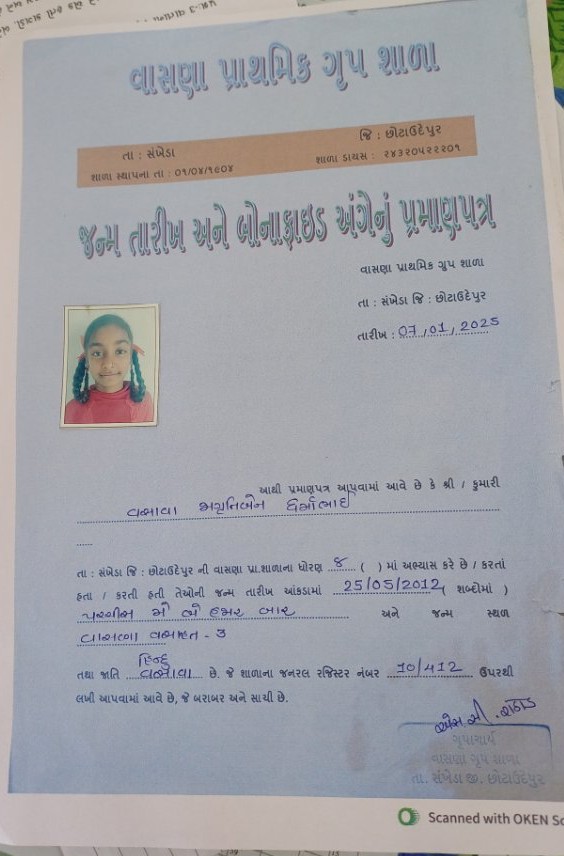 વાસણા પ્રાથમિક ગૃપ શાળા
તા : સંખેડા
જિ : છોટાઉદેપુર
શાળા સ્થાપના તા : ૦૧/૦૪/૧૯૦૪
શાળા ડાયસ : ૨૪૩૨૦૫૨૨૨૦૧
જન્મ તારીખ અને બોનાફાઇડ અંગેનું પ્રમાણપત્ર
વાસણા પ્રાથમિક ગૃપ શાળા
તા : સંખેડા જિ : છોટાઉદેપુર
તારીખ : 07/01/2025
આથી પ્રમાણપત્ર આપવામાં આવે છે કે શ્રી / કુમારી
વસાવા
તા : સંખેડા જિ : છોટાઉદેપુર ની વાસણા પ્રા.શાળાના ધોરણ ૪ ( ) માં અભ્યાસ કરે છે / કરતાં
હતા / કરતી હતી તેઓની જન્મ તારીખ આંકડામાં 25/05/2012 ( શબ્દોમાં )
પચ્ચીસ મે બે હજાર બાર અને જન્મ સ્થળ
વાસણા વસાહત - ૩
હિન્દુ
તથા જાતિ વસાવા છે. જે શાળાના જનરલ રજિસ્ટર નંબર 10/412 ઉપરથી
લખી આપવામાં આવે છે, જે બરાબર અને સાચી છે.
ગૃપાચાર્ય
વાસણા ગૃપ શાળા
તા. સંખેડા જી. છોટાઉદેપુર
Scanned with OKEN